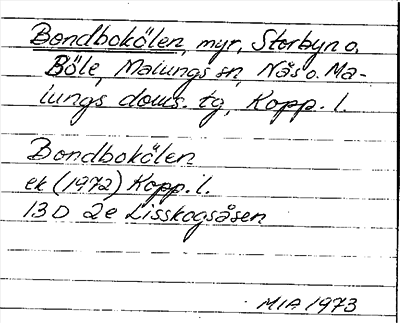 Bondbokölen, myr, Storbyn o.
Böle, Malungs sn, Nås o. Ma-
lungs doms. tg, Kopp. l.
Bondbokölen
ek (1972) Kopp. l.
13D 2e Lisskogsåsen
MIA 1973